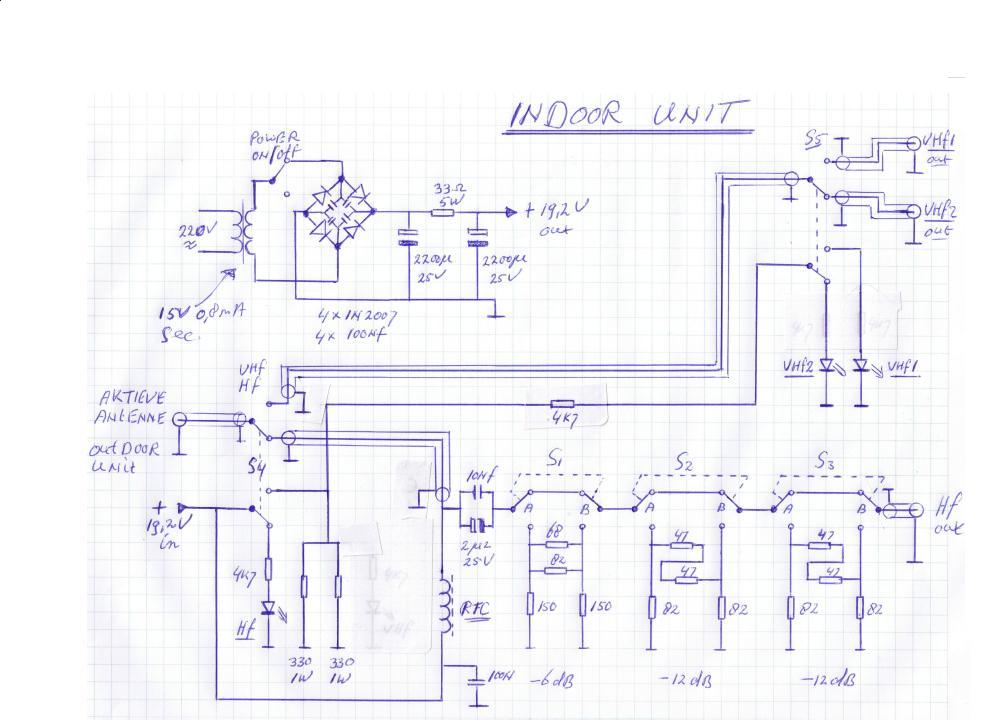 INDOOR UNIT
POWER
ON/Off
220V
≈
15V 0,8mA
Sec.
4x1N2007
4x 100Nf
33Ω
5W
2200µ
25V
2200µ
25V
+ 19,2V
out
S5
VHf1
out
VHf2
out
4K7
4K7
VHf2
VHf1
VHf
Hf
AKTIEVE
ANTENNE
outDOOR
UNIT
S4
+
19,2V
in
4K7
Hf
330
1W
330
1W
4K7
4K7
VHf
RFC
100N
10Nf
2µ2
25V
S1
A
B
68
82
150
150
-6dB
S2
A
B
47
47
82
82
-12dB
S3
A
B
47
47
82
82
-12dB
Hf
out